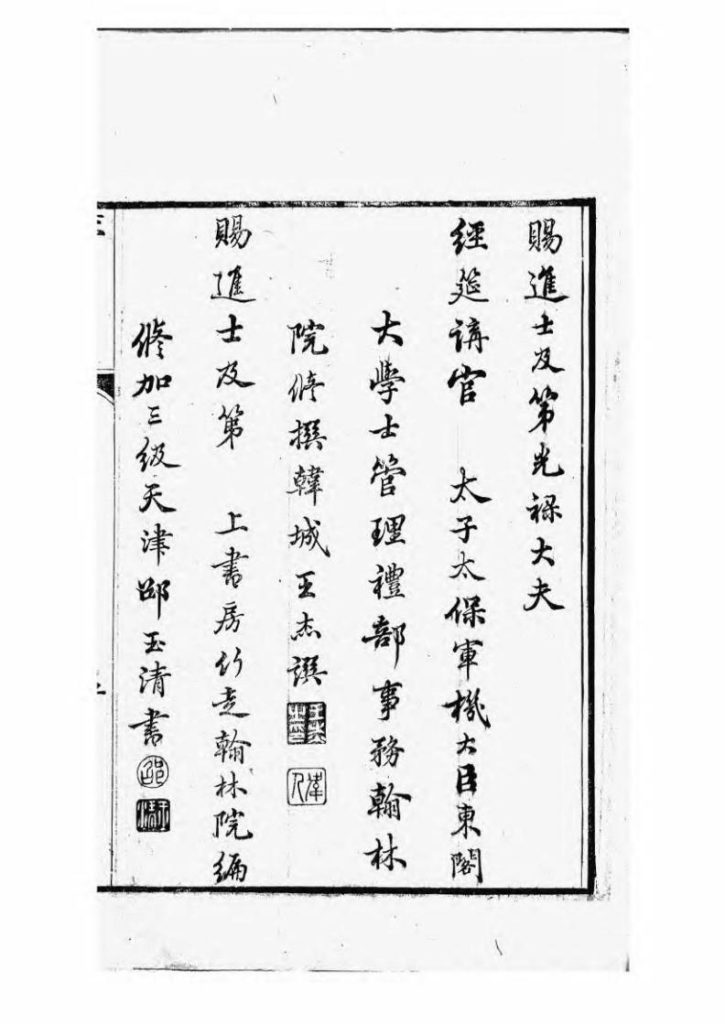 賜進士及第光祿大夫
經筵講官 太子太保軍機大臣東閣
大學士管理禮部事務翰林
院修撰韓城王杰譔
賜進士及第 上書房行走翰林院編
修加三級天津邵玉清書